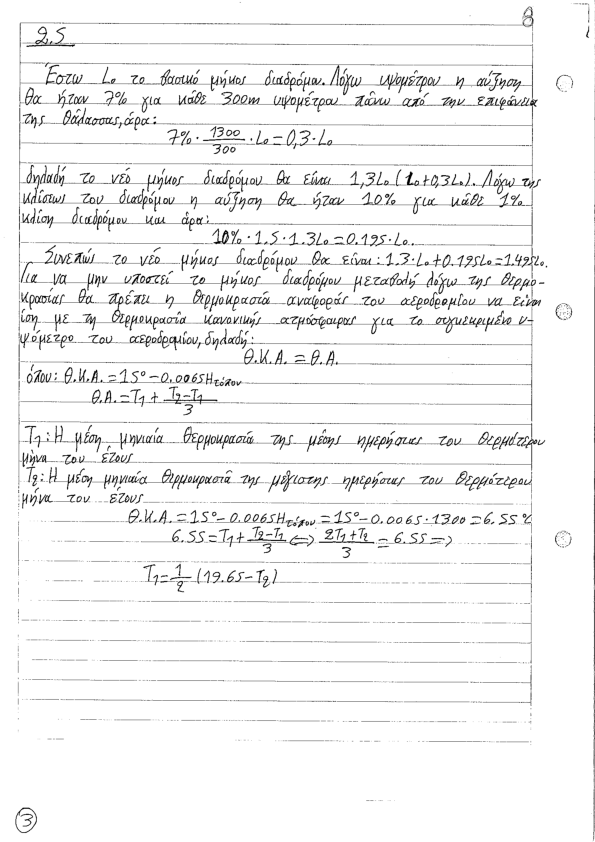 8
2.5
Έστω L₀ το βασικό μήκος διαδρόμα. Λόγω υψομέτρου η αύξηση
θα ήταν 7% για κάθε 300m υψομέτρου πάνω από την επιφάνεια
της θάλασσας, άρα:
7% · 1300/300 · L₀ = 0,3 · L₀
δηλαδή το νέο μήκος διαδρόμου θα είναι 1,3L₀ (L₀+0,3L₀). Λόγω της
κλίσεως του διαδρόμου η αύξηση θα ήταν 10% για κάθε 1%
κλίση διαδρόμου και άρα:
10% · 1.5 · 1.3L₀ = 0.195 · L₀.
Συνεπώς το νέο μήκος διαδρόμου θα είναι: 1.3 · L₀ + 0.195L₀ = 1.495L₀.
Για να μην υποστεί το μήκος διαδρόμου μεταβολή λόγω της θερμο-
κρασίας θα πρέπει η θερμοκρασία αναφοράς του αεροδρομίου να είναι
ίση με τη θερμοκρασία κανονικής ατμόσφαιρας για το συγκεκριμένο υ-
ψόμετρο του αεροδρομίου, δηλαδή:
Θ.Κ.Α. = Θ.Α.
όπου: Θ.Κ.Α. = 15° - 0.0065Hτόπου
Θ.Α. = T₁ + (T₂-T₁)/3
T₁: Η μέση μηνιαία θερμοκρασία της μέσης ημερήσιας του θερμότερου
μήνα του έτους
T₂: Η μέση μηνιαία θερμοκρασία της μέγιστης ημερήσιας του θερμότερου
μήνα του έτους
Θ.Κ.Α. = 15° - 0.0065Hτόπου = 15° - 0.0065 · 1300 = 6.55 °C
6.55 = T₁ + (T₂-T₁)/3 ⇔ (2T₁+T₂)/3 = 6.55 =>
T₁ = 1/2 (19.65 - T₂)
3